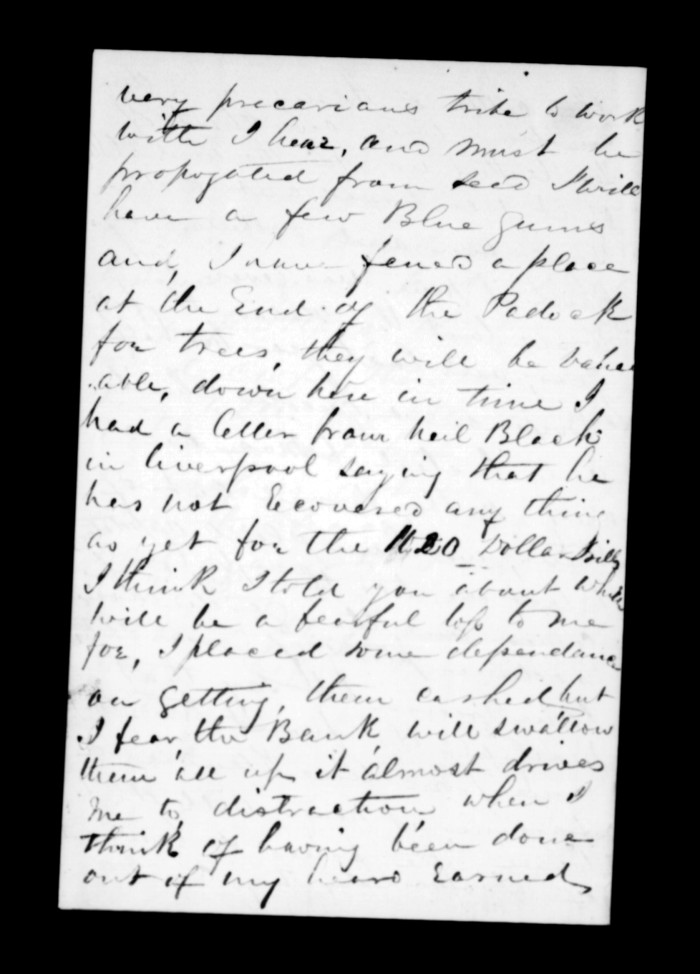 very precarious tribe to work
with I hear, and must be
propogated from seed I will
have a few Blue gums
and, I have fenced a place
at the End of the Padock
for trees, they will be value
able, down here in time I
had a letter from Neil Black
in liverpool saying that he
has not Recovered any thing
as yet for the 1120 Dollar Bills
I think I told you about which
will be a fearful loss to me
for, I placed some dependance
on getting, them cashed but
I fear the Bank will swallow
them all up it almost drives
me to distraction when I
think of having been done
out of my hard Earned